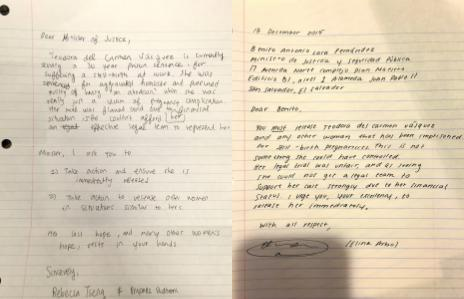 Dear Minister of Justice,
Teodora del Carmen Vásquez is currently
serving a 30 year prison sentence for
suffering a still-birth at work. She was
sentenced for aggravated homicide and presumed
guilty of having an abortion when she was
really just a victim of pregnancy complication.
Her trial was flawed and
situation she couldn't afford
an effective legal team to represent her.
Minister, I ask you to
1) Take action and ensure she is
immediately released
2) Take action to release other women
in situations similar to hers
last hope, and many other women's
hope, rests in your hands
Sincerely,
Rebecca Tseng &
13 December 2015
Benito Antonio Lara Fernández
Ministro de Justicia y Seguridad Pública
Complejo Plan Maestro
Edificio B1, Alameda Juan Pablo II
San Salvador, El Salvador
Dear Benito,
You must release Teodora del Carmen Vásquez
and any other woman that has been imprisoned
for still-birth pregnancies. This is not
something she could have controlled.
Her legal trial was unfair, and as
she could not get a legal team to
support her case strongly due to her financial
status. I urge you, your excellency, to
release her immediately.
With all respect,
(Elina